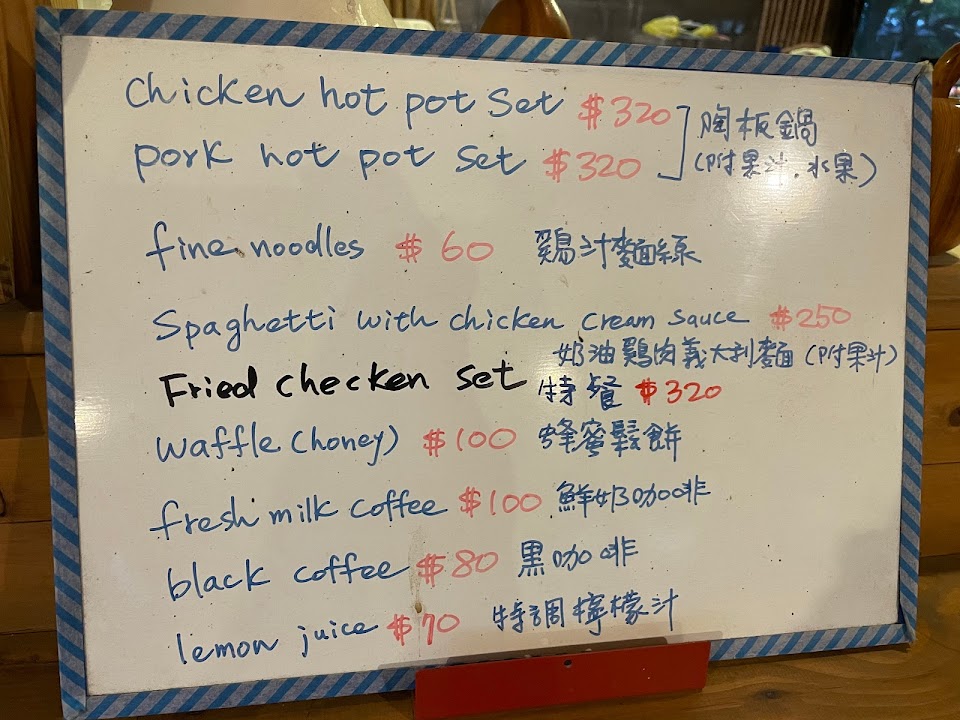 Chicken hot pot Set $320
pork hot pot Set $320
陶板鍋
(附果汁.水果)
fine noodles $60 鷄汁麵線
Spaghetti with chicken cream sauce $250
奶油鷄肉義大利麵(附果汁)
Fried checken set 特餐 $320
waffle (honey) $100 蜂蜜鬆餅
fresh milk coffee $100 鮮奶咖啡
black coffee $80 黑咖啡
lemon juice $70 特調檸檬汁